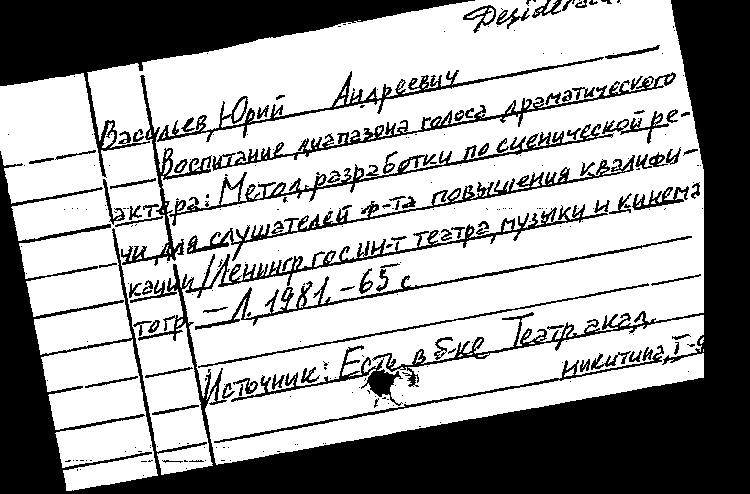 Desiderata.
Васильев, Юрий Андреевич
Воспитание диапазона голоса драматического
актера: Метод. разработки по сценической ре-
чи для слушателей ф-та повышения квалифи-
кации / Ленингр. гос. ин-т театра, музыки и кинема
тогр. – Л., 1981. – 65 с.
Источник: Есть в б-ке Театр. акад.
Никитина,